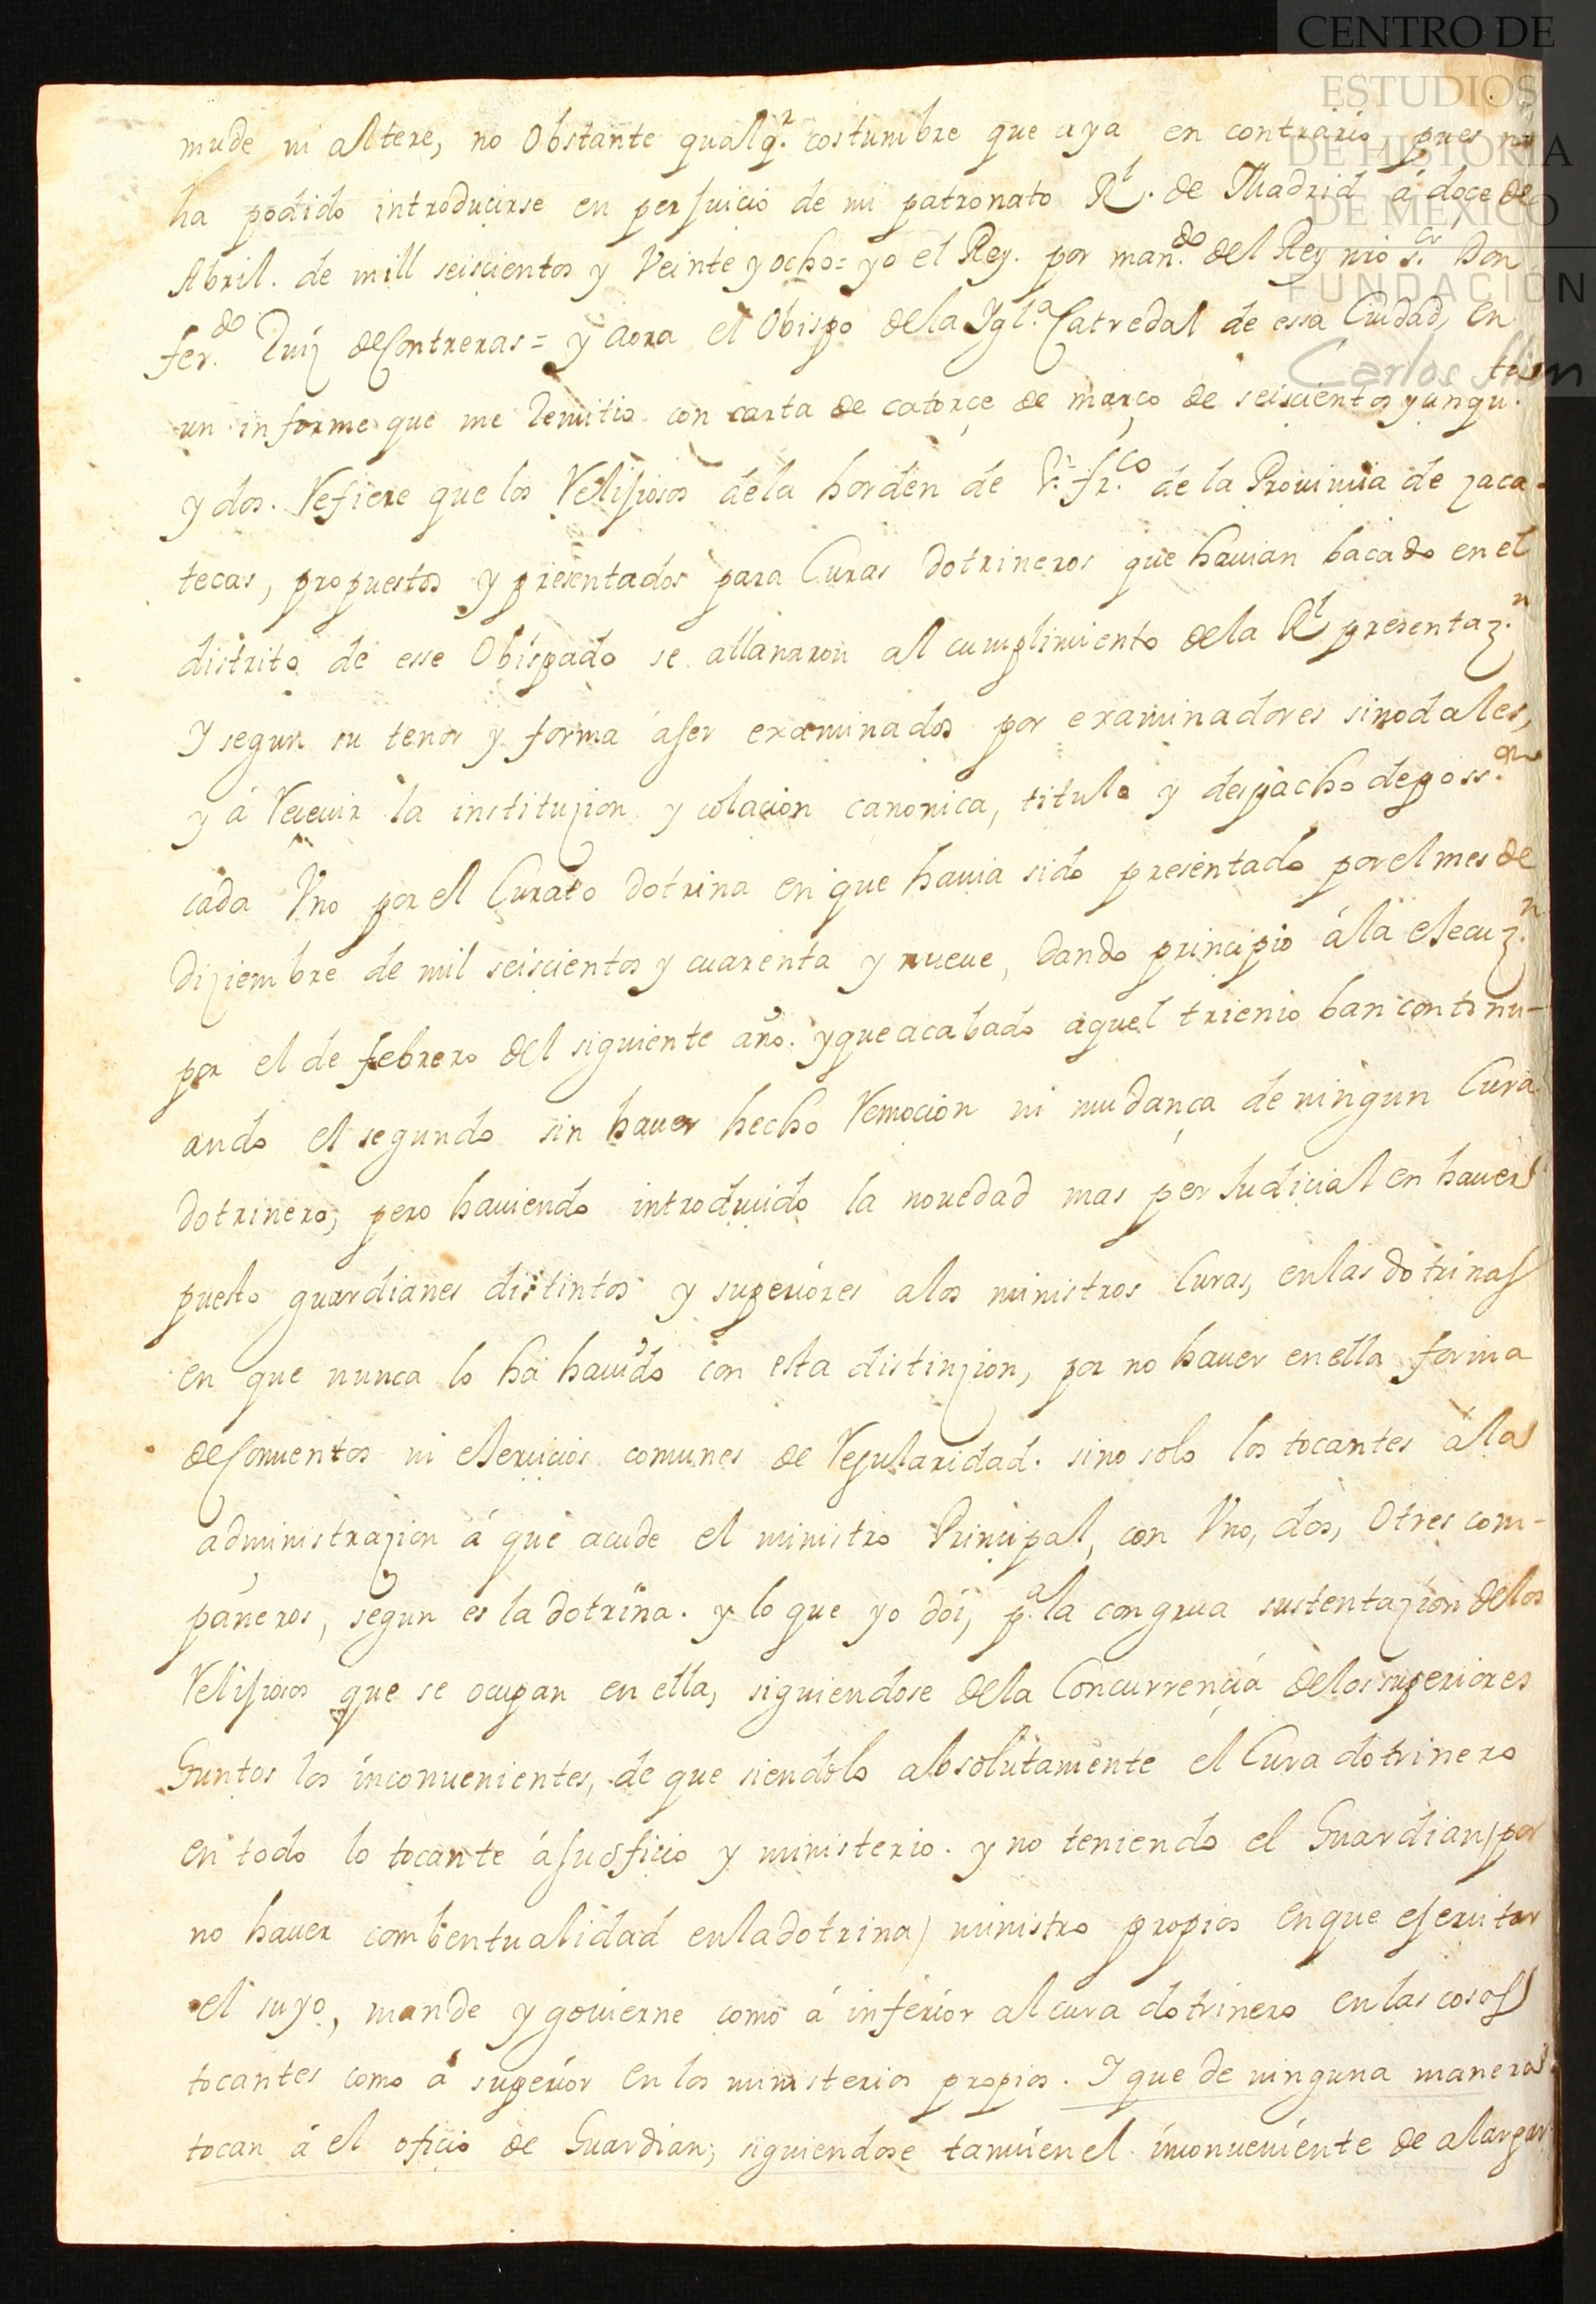 CENTRO DE
ESTUDIOS
DE HISTORIA
DE MÉXICO
FUNDACIÓN
Carlos Slim
mude ni altere, no obstante qualqr. costumbre que aya en contrario pues no
ha podido introducirse en perjuicio de mi patronato Rl. de Madrid á doce de
Abril. de mill seiscientos y Veinte y ocho = yo el Rey. por mando. del Rey nro sr. Don
ferdo. Ruiz de Contreras = y aora el Obispo de la Yglª Catredal de essa Ciudad, en
un informe que me Remitio con carta de catorçe de março de seiscientos y cinqu.ta
y dos. Refiere que los Religiosos de la horden de S. fr.co de la Provincia de zaca-
tecas, propuestos y presentados para Curas dotrineros que hauian bacado en el
distrito de esse Obispado se allanaron al cumplimiento de la Rl presentaz.n
Y segun su tenor y forma á ser examinados por examinadores sinodales,
y á Receuir la instituzion y colacion canonica, titulo y despacho de poss.on
cada Vno por el Curato dotrina en que hauia sido presentado por el mes de
diziembre de mil seiscientos y cuarenta y nueue, dando principio á la ejecuz.n
por el de febrero del siguiente año. y que acabado aquel trienio ban continu-
ando el segundo sin hauer hecho Remocion ni mudança de ningun Cura
dotrinero; pero hauiendo introducido la nouedad mas perjudicial en hauer
puesto guardianes distintos y superiores a los ministros Curas, en las dotrinas
en que nunca lo ha hauido con esta distinzion, por no hauer en ella forma
de Conuentos ni ejercicios comunes de Regularidad. sino solo los tocantes á la
administrazion á que acude el ministro Principal, con Vno, dos, O tres com-
pañeros, segun es la dotrina. y lo que yo doi, p.a la congrua sustentazion de los
Religiosos que se ocupan en ella, siguiendose de la Concurrencia de los superiores
Guntos los inconuenientes, de que siendolo absolutamente el Cura dotrinero
en todo lo tocante á su oficio y ministerio. y no teniendo el Guardian (por
no hauer combentualidad en la dotrina) ministro propios en que ejercitar
el suyo, mande y gouierne como á inferior al cura dotrinero en las cosas
tocantes como á superior en los ministerios propios. Y que de ninguna manera
tocan á el oficio de Guardian; siguiendose tamuien el inconueniente de alargar